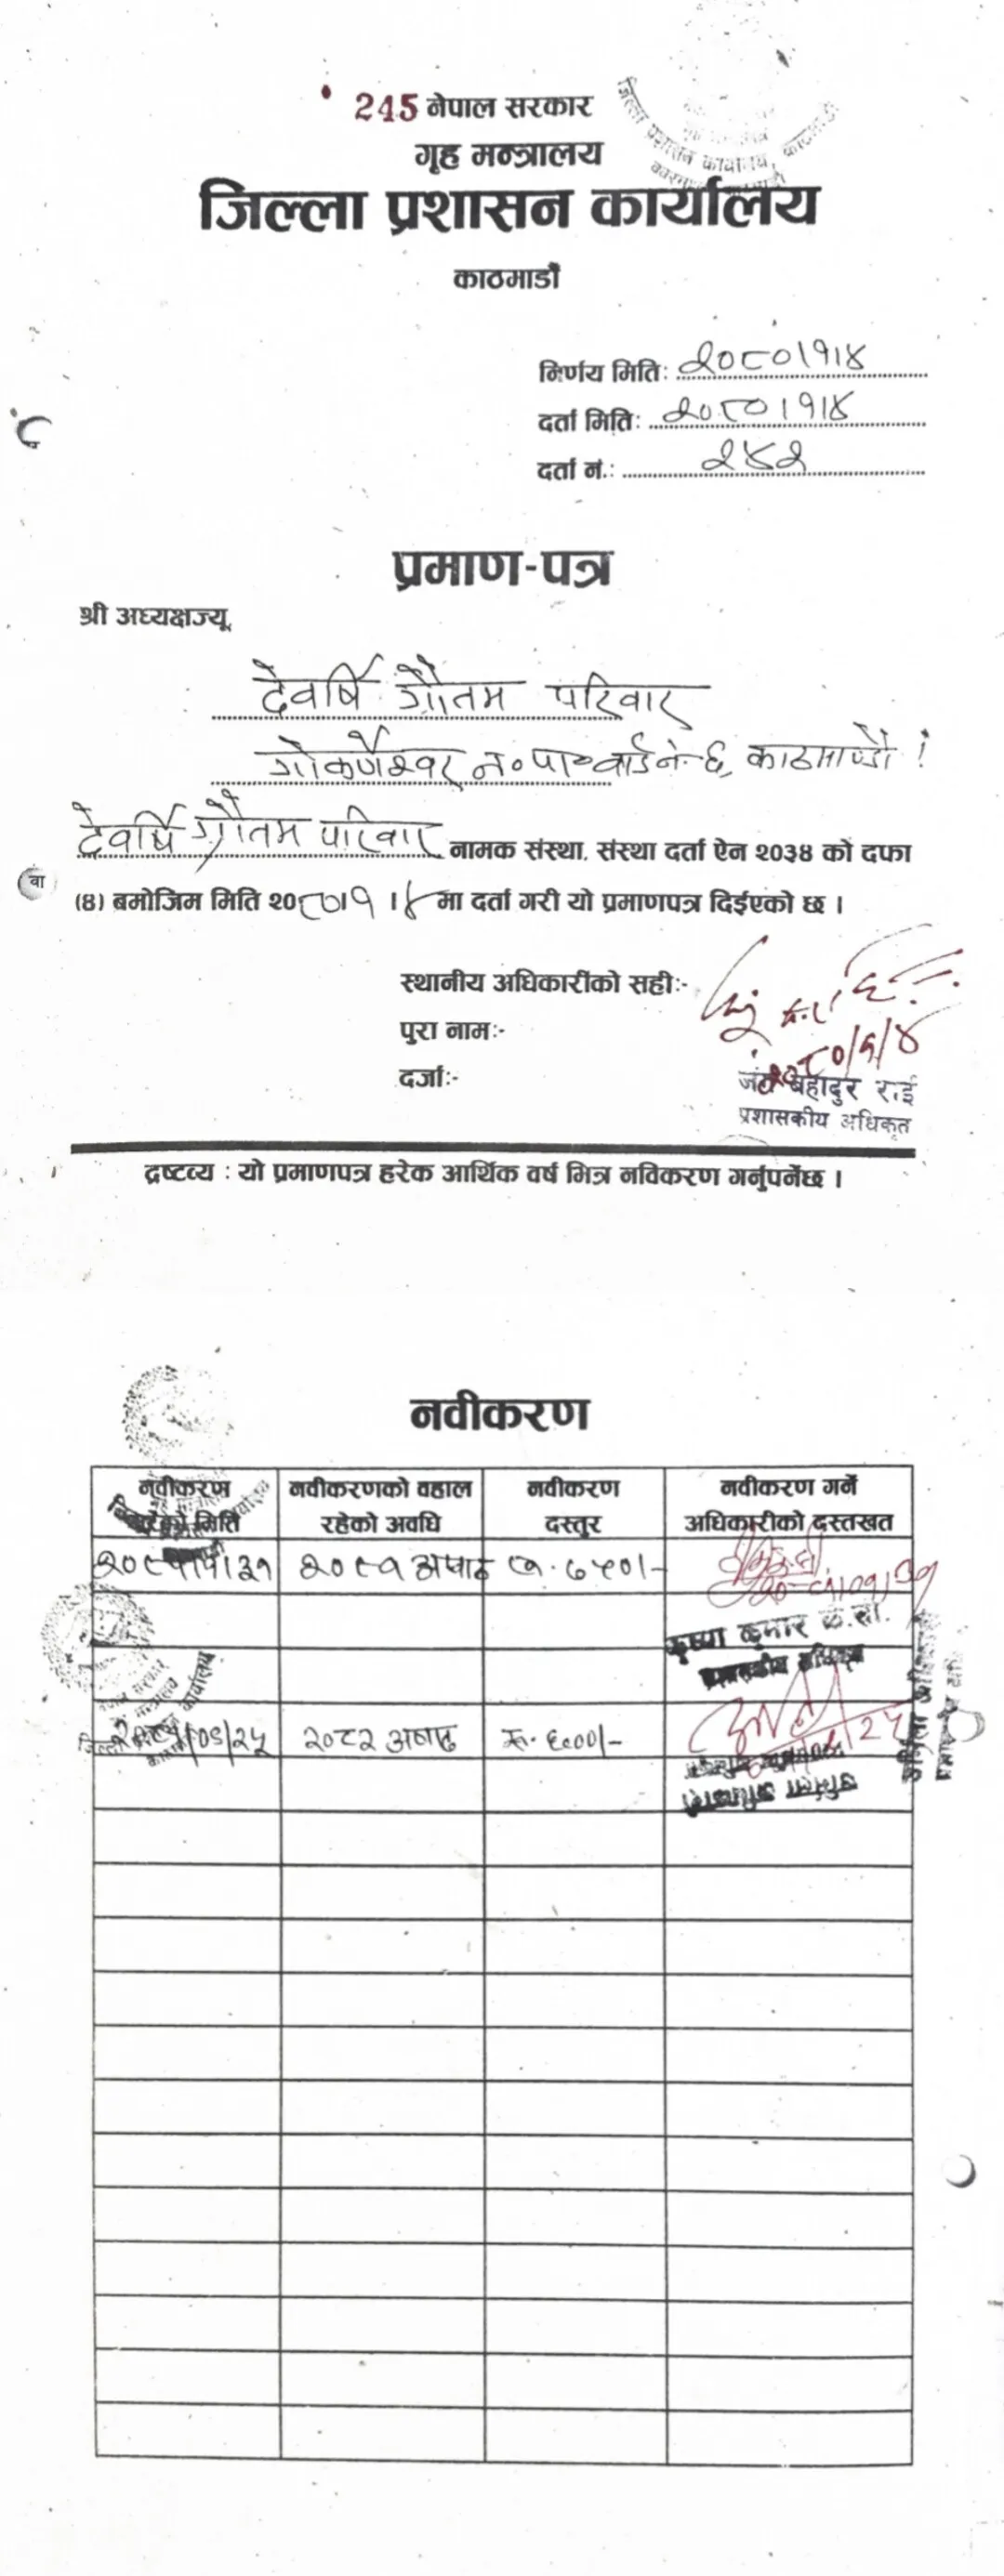 245 नेपाल सरकार
गृह मन्त्रालय
जिल्ला प्रशासन कार्यालय
काठमाडौं
जिल्ला प्रशासन कार्यालय, काठमाडौं
निर्णय मितिः २०८०।९।४
दर्ता मितिः २०८०।९।४
दर्ता नं.: २४२
प्रमाण-पत्र
श्री अध्यक्षज्यू,
देवर्षि गौतम परिवार
गोकर्णेश्वर न॰पा॰ वार्ड नं. ६, काठमाण्डौ !
देवर्षि गौतम परिवार नामक संस्था, संस्था दर्ता ऐन २०३४ को दफा
(४) बमोजिम मिति २०८०।९।४ मा दर्ता गरी यो प्रमाणपत्र दिईएको छ ।
स्थानीय अधिकारीको सहीः-
पुरा नामः-
दर्जाः-
२०८०/९/४
जंग बहादुर राई
प्रशासकीय अधिकृत
द्रष्टव्य : यो प्रमाणपत्र हरेक आर्थिक वर्ष भित्र नविकरण गर्नुपर्नेछ ।
नवीकरण
नवीकरण मिति
नवीकरणको वहाल रहेको अवधि
नवीकरण दस्तुर
नवीकरण गर्ने अधिकारीको दस्तखत
२०८१ अषाढ
कृष्ण कुमार के.सी.
प्रशासकीय अधिकृत
२०८२ अषाढ रू. ६००।-